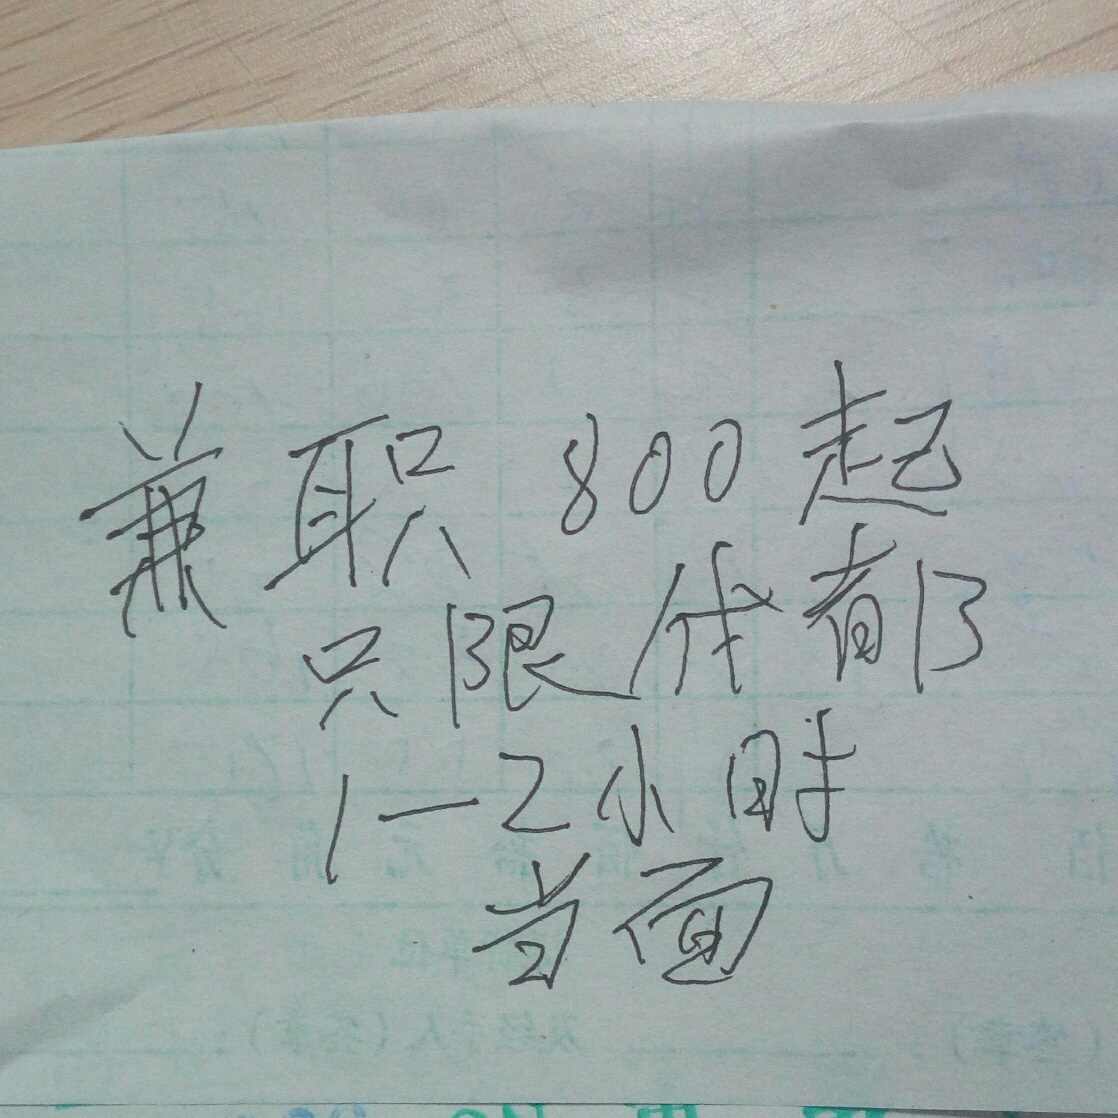 兼职 800起
只限成都
1—2小时
当面